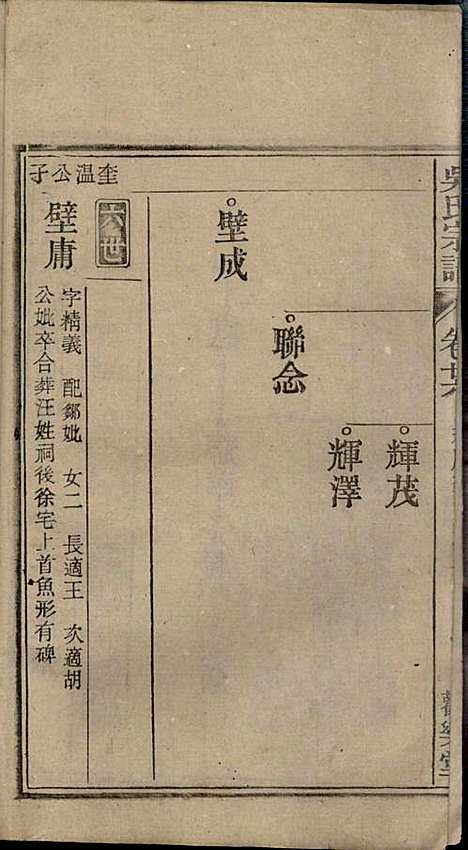 吳氏宗譜
輝茂
輝澤
聯念
璧成
六世
奎温公子
璧庸
字精義 配鄒妣 女二 長適王 次適胡
公妣卒合葬汪姓祠後徐宅上首魚形有碑